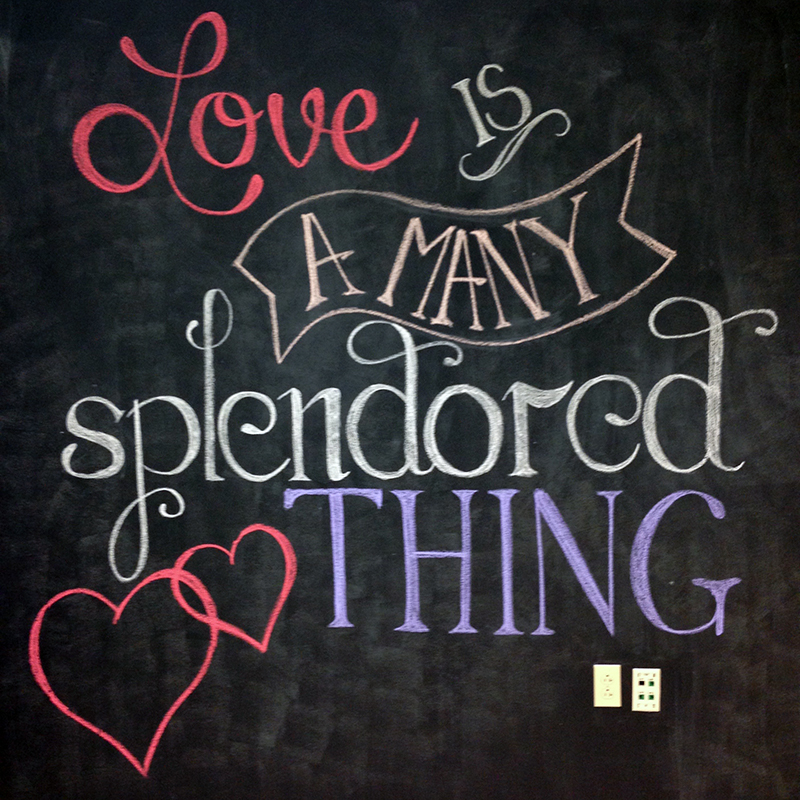 Love IS
A MANY
splendored
THING